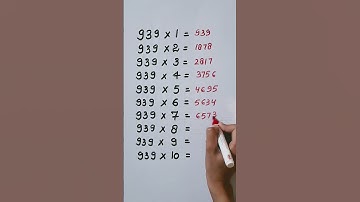 939 x 1 = 939
939 x 2 = 1878
939 x 3 = 2817
939 x 4 = 3756
939 x 5 = 4695
939 x 6 = 5634
939 x 7 = 6573
939 x 8 =
939 x 9 =
939 x 10 =